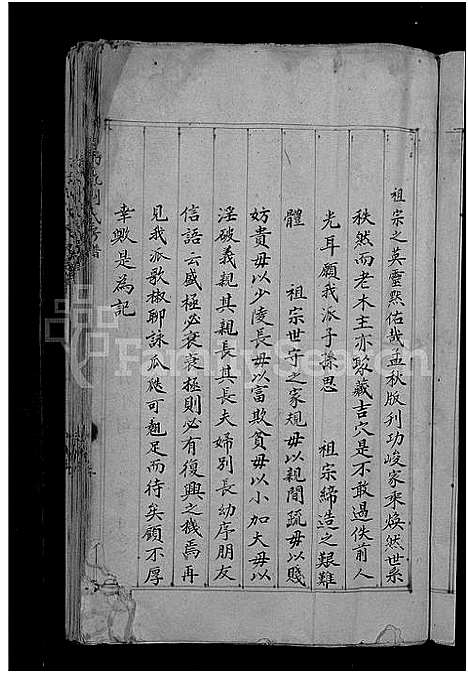 祖宗之英靈默佑哉孟秋版列功峻家乘煥然世系
秩然而老木主亦聚藏吉穴是不敢過佚前人
光耳願我派子孫思 祖宗締造之艱難
體 祖宗世守之家規毋以親間疏毋以賤
妨貴毋以少陵長毋以富欺貧毋以小加大毋以
淫破義親其親長其長夫婦別長幼序朋友
信語云盛極必衰衰極則必有復興之機焉再
見我派歌椒聊詠瓜瓞可翹足而待矣顧不厚
幸歟是為記
FamilySearch